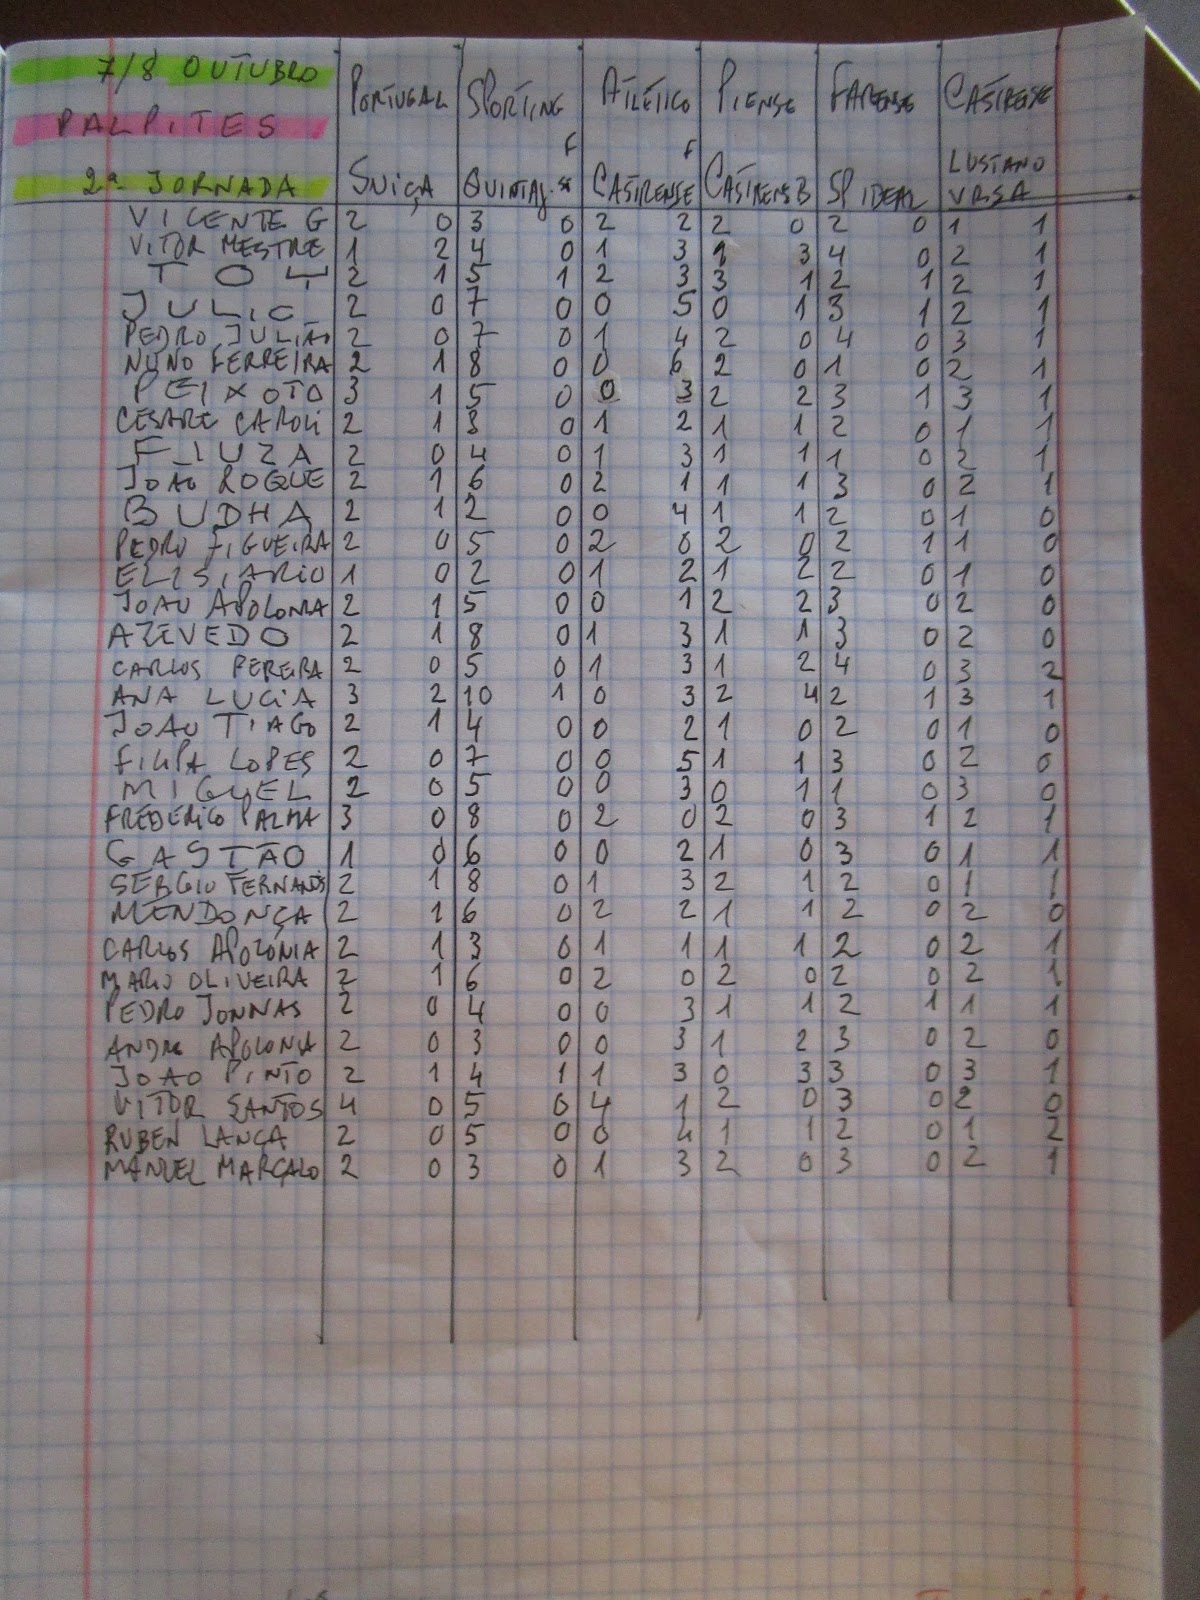 7/8 OUTUBRO PORTUGAL SPORTING ATLÉTICO PIENSE FARENSE CASTRENSE
PALPITES F F
2ª JORNADA SUIÇA QUINTAJ. CASTRENSE CASTRENSB SP IDEAL LUSITANO VRSA
VICENTE G 2 0 3 0 2 2 2 0 2 0 1 1
VITOR MESTRE 1 2 4 0 1 3 1 3 4 0 2 1
TOY 2 1 5 1 2 3 3 1 2 1 2 1
JULIO 2 0 7 0 0 5 0 1 3 1 2 1
PEDRO JULIÃO 2 0 7 0 1 4 2 0 4 0 3 1
NUNO FERREIRA 2 1 8 0 0 6 2 0 1 0 2 1
PEIXOTO 3 1 5 0 0 3 2 2 3 1 3 1
CESARE CAROLI 2 1 3 0 1 2 1 1 2 0 1 1
FIUZA 2 0 4 0 1 3 1 1 1 0 2 1
JOAO ROQUE 2 1 6 0 2 1 1 1 3 0 2 1
BUDHA 2 1 2 0 0 4 1 1 2 0 1 0
PEDRO FIGUEIRA 2 0 5 0 2 0 2 0 2 1 1 0
ELISIARIO 1 0 2 0 1 2 1 2 2 0 1 0
JOAO APOLONIA 2 1 5 0 0 1 2 2 3 0 2 0
AZEVEDO 2 1 8 0 1 3 1 1 3 0 2 0
CARLOS PEREIRA 2 0 5 0 1 3 1 2 4 0 3 2
ANA LUCIA 3 2 10 1 0 3 2 4 2 1 3 1
JOAO TIAGO 2 1 4 0 0 2 1 0 2 0 1 0
FILIPA LOPES 2 0 7 0 0 5 1 1 3 0 2 0
MIGUEL 2 0 5 0 0 3 0 1 1 0 3 0
FREDERICO PALMA 3 0 8 0 2 0 2 0 3 1 2 1
GASTÃO 1 0 6 0 0 2 1 0 3 0 1 1
SERGIO FERNANDS 2 1 8 0 1 3 2 1 2 0 1 1
MENDONÇA 2 1 6 0 2 2 1 1 2 0 2 0
CARLOS APOLONIA 2 1 3 0 1 1 1 1 2 0 2 1
MARIO OLIVEIRA 2 1 6 0 2 0 2 0 2 0 2 1
PEDRO JONNAS 2 0 4 0 0 3 1 1 2 1 1 1
ANDRE APOLONIA 2 0 3 0 0 3 1 2 3 0 2 0
JOAO PINTO 2 1 4 1 1 3 0 3 3 0 3 1
VITOR SANTOS 4 0 5 0 4 1 2 0 3 0 2 0
RUBEN LANÇA 2 0 5 0 0 4 1 1 2 0 1 2
MANUEL MARÇALO 2 0 3 0 1 3 2 0 3 0 2 1